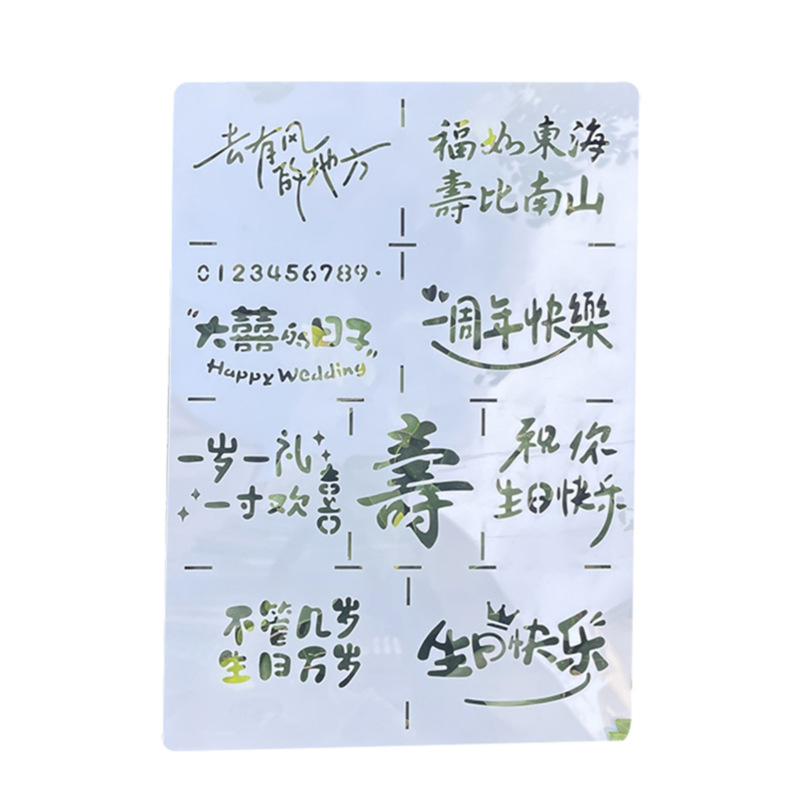 去有风
的地方
福如東海
壽比南山
0123456789.
"大囍的日子"
Happy Wedding
一周年快樂
一岁一礼
一寸欢喜
壽
祝你
生日快乐
不管几岁
生日万岁
生日快乐